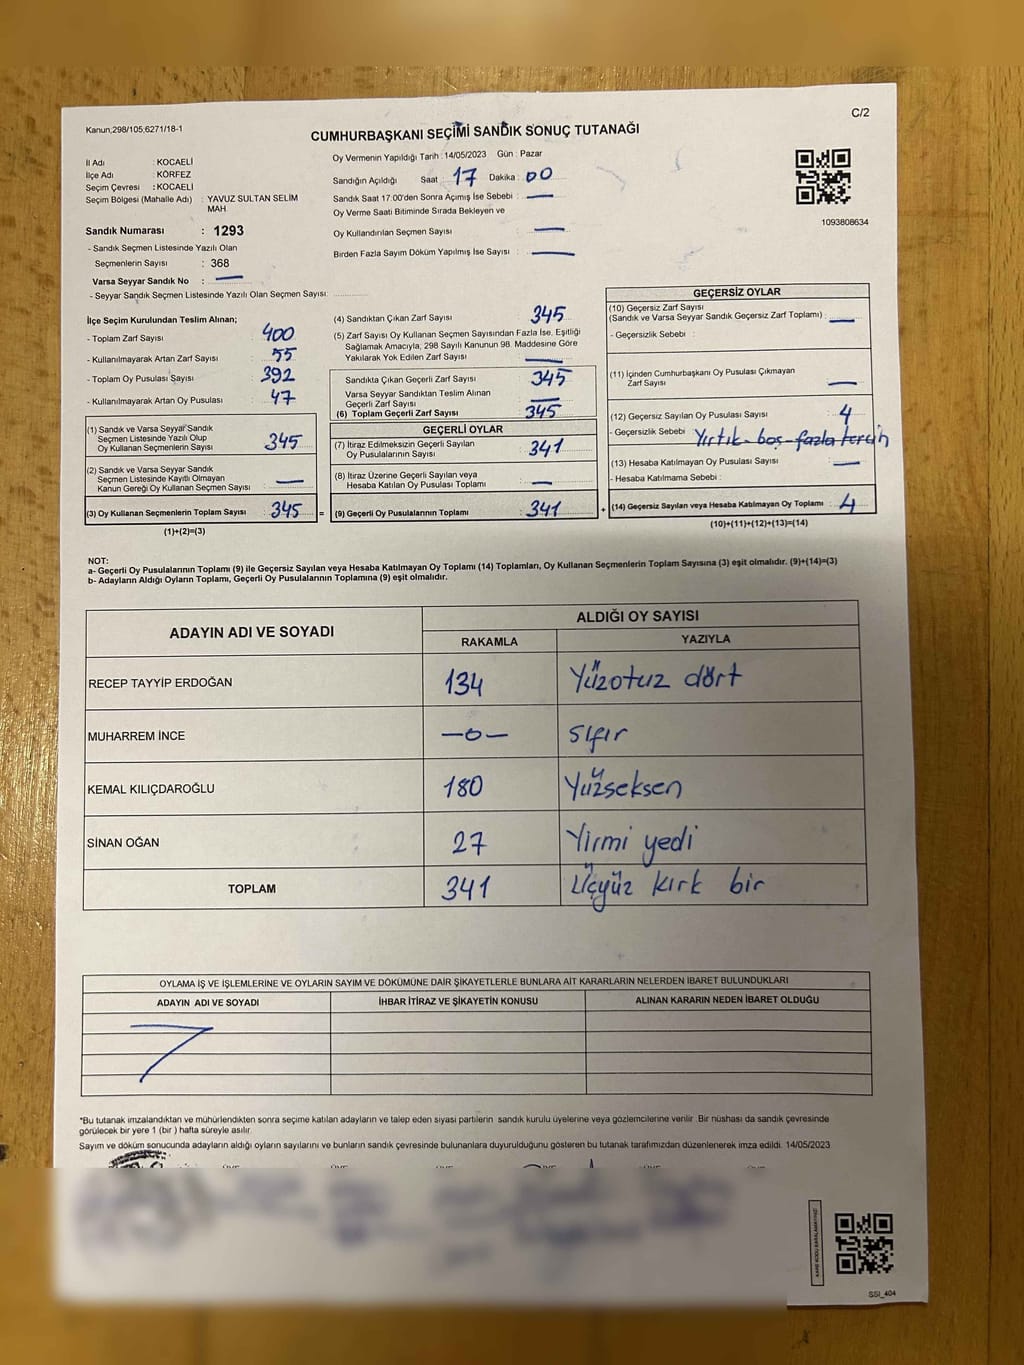 C/2
Kanun,298/105,6271/18-1
CUMHURBAŞKANI SEÇİMİ SANDIK SONUÇ TUTANAĞI
İl Adı : KOCAELİ
İlçe Adı : KÖRFEZ
Seçim Çevresi : KOCAELİ
Seçim Bölgesi (Mahalle Adı) : YAVUZ SULTAN SELİM
MAH
Sandık Numarası : 1293
- Sandık Seçmen Listesinde Yazılı Olan
Seçmenlerin Sayısı : 368
Varsa Seyyar Sandık No : —
- Seyyar Sandık Seçmen Listesinde Yazılı Olan Seçmen Sayısı:
Oy Vermenin Yapıldığı Tarih : 14/05/2023 Gün : Pazar
Sandığın Açıldığı Saat : 17 Dakika : 00
Sandık Saat 17.00'den Sonra Açımış İse Sebebi : —
Oy Verme Saati Bitiminde Sırada Bekleyen ve
Oy Kullandırılan Seçmen Sayısı : —
Birden Fazla Sayım Döküm Yapılmış İse Sayısı : —
1093808634
İlçe Seçim Kurulundan Teslim Alınan;
- Toplam Zarf Sayısı : 400
- Kullanılmayarak Artan Zarf Sayısı : 55
- Toplam Oy Pusulası Sayısı : 392
- Kullanılmayarak Artan Oy Pusulası : 47
(1) Sandık ve Varsa Seyyar Sandık
Seçmen Listesinde Yazılı Olup
Oy Kullanan Seçmenlerin Sayısı : 345
(2) Sandık ve Varsa Seyyar Sandık
Seçmen Listesinde Kayıtlı Olmayan
Kanun Gereği Oy Kullanan Seçmen Sayısı : —
(3) Oy Kullanan Seçmenlerin Toplam Sayısı : 345 =
(1)+(2)=(3)
(4) Sandıktan Çıkan Zarf Sayısı : 345
(5) Zarf Sayısı Oy Kullanan Seçmen Sayısından Fazla İse, Eşitliği
Sağlamak Amacıyla, 298 Sayılı Kanunun 98. Maddesine Göre
Yakılarak Yok Edilen Zarf Sayısı : —
Sandıkta Çıkan Geçerli Zarf Sayısı : 345
Varsa Seyyar Sandıktan Teslim Alınan
Geçerli Zarf Sayısı : —
(6) Toplam Geçerli Zarf Sayısı : 345
GEÇERLİ OYLAR
(7) İtiraz Edilmeksizin Geçerli Sayılan
Oy Pusulalarının Sayısı : 341
(8) İtiraz Üzerine Geçerli Sayılan veya
Hesaba Katılan Oy Pusulası Toplamı : —
(9) Geçerli Oy Pusulalarının Toplamı : 341 +
GEÇERSİZ OYLAR
(10) Geçersiz Zarf Sayısı
(Sandık ve Varsa Seyyar Sandık Geçersiz Zarf Toplamı) : —
- Geçersizlik Sebebi :
(11) İçinden Cumhurbaşkanı Oy Pusulası Çıkmayan
Zarf Sayısı : —
(12) Geçersiz Sayılan Oy Pusulası Sayısı : 4
- Geçersizlik Sebebi : Yırtık - boş - fazla tercih
(13) Hesaba Katılmayan Oy Pusulası Sayısı : —
- Hesaba Katılmama Sebebi :
(14) Geçersiz Sayılan veya Hesaba Katılmayan Oy Toplamı : 4
(10)+(11)+(12)+(13)=(14)
NOT:
a- Geçerli Oy Pusulalarının Toplamı (9) ile Geçersiz Sayılan veya Hesaba Katılmayan Oy Toplamı (14) Toplamları, Oy Kullanan Seçmenlerin Toplam Sayısına (3) eşit olmalıdır. (9)+(14)=(3)
b- Adayların Aldığı Oyların Toplamı, Geçerli Oy Pusulalarının Toplamına (9) eşit olmalıdır.
ADAYIN ADI VE SOYADI ALDIĞI OY SAYISI
RAKAMLA YAZIYLA
RECEP TAYYİP ERDOĞAN 134 Yüzotuz dört
MUHARREM İNCE —0— sıfır
KEMAL KILIÇDAROĞLU 180 Yüzseksen
SİNAN OĞAN 27 Yirmi yedi
TOPLAM 341 Üçyüz kırk bir
OYLAMA İŞ VE İŞLEMLERİNE VE OYLARIN SAYIM VE DÖKÜMÜNE DAİR ŞİKAYETLERLE BUNLARA AİT KARARLARIN NELERDEN İBARET BULUNDUKLARI
ADAYIN ADI VE SOYADI İHBAR İTİRAZ VE ŞİKAYETİN KONUSU ALINAN KARARIN NEDEN İBARET OLDUĞU
*Bu tutanak imzalandıktan ve mühürlendikten sonra seçime katılan adayların ve talep eden siyasi partilerin sandık kurulu üyelerine veya gözlemcilerine verilir. Bir nüshası da sandık çevresinde
görülecek bir yere 1 (bir ) hafta süreyle asılır.
Sayım ve döküm sonucunda adayların aldığı oyların sayılarını ve bunların sandık çevresinde bulunanlara duyurulduğunu gösteren bu tutanak tarafımızdan düzenlenerek imza edildi. 14/05/2023
SSI_404